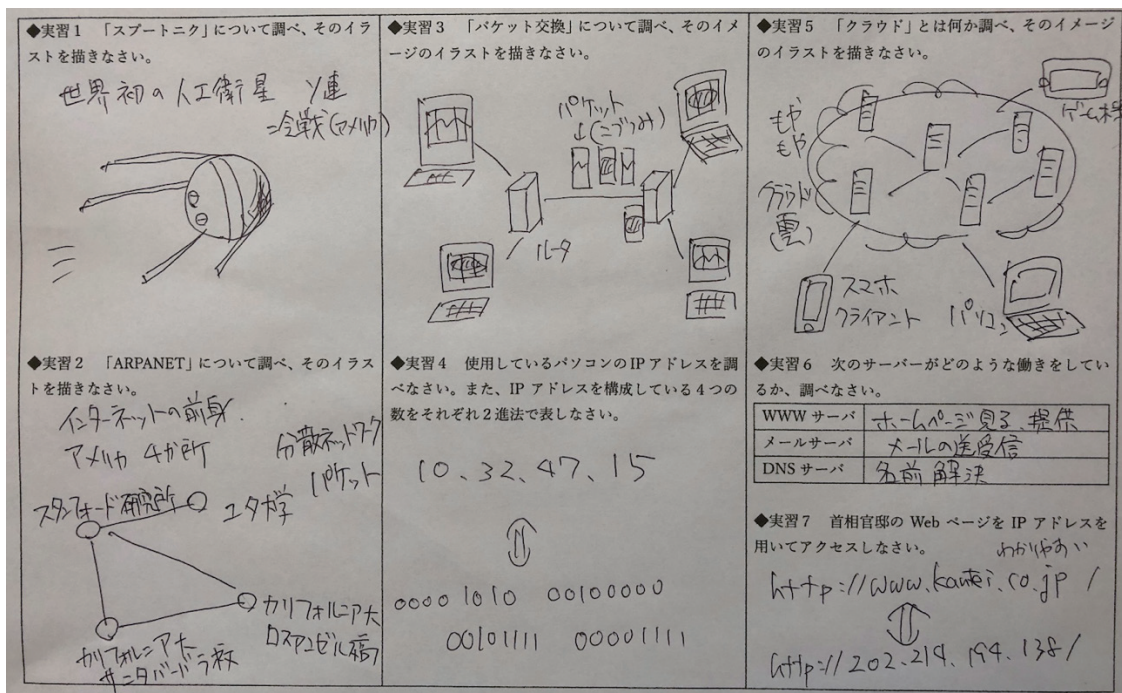 ◆実習1 「スプートニク」について調べ、そのイラ
ストを描きなさい。
世界初の人工衛星 ソ連
冷戦(アメリカ)
◆実習2 「ARPANET」について調べ、そのイラス
トを描きなさい。
インターネットの前身
アメリカ 4か所
分散ネットワーク
パケット
スタンフォード研究所
ユタ大学
カリフォルニア大
カリフォルニア大
サンタバードラ校
◆実習3 「パケット交換」について調べ、そのイメ
ージのイラストを描きなさい。
パケット
(こづつみ)
ルータ
◆実習4 使用しているパソコンのIPアドレスを調
べなさい。また、IPアドレスを構成している4つの
数をそれぞれ2進法で表しなさい。
10.32.47.15
00001010 00100000
00101111 00001111
◆実習5 「クラウド」とは何か調べ、そのイメージ
のイラストを描きなさい。
ゲーム機
もや
もや
クラウド
(雲)
スマホ
クライアント
パソコン
◆実習6 次のサーバーがどのような働きをしてい
るか、調べなさい。
WWWサーバ ホームページ見る、提供
メールサーバ メールの送受信
DNSサーバ 名前解決
◆実習7 首相官邸のWebページをIPアドレスを
用いてアクセスしなさい。
わかりやすい
http://www.kantei.co.jp/
http://202.214.194.138/